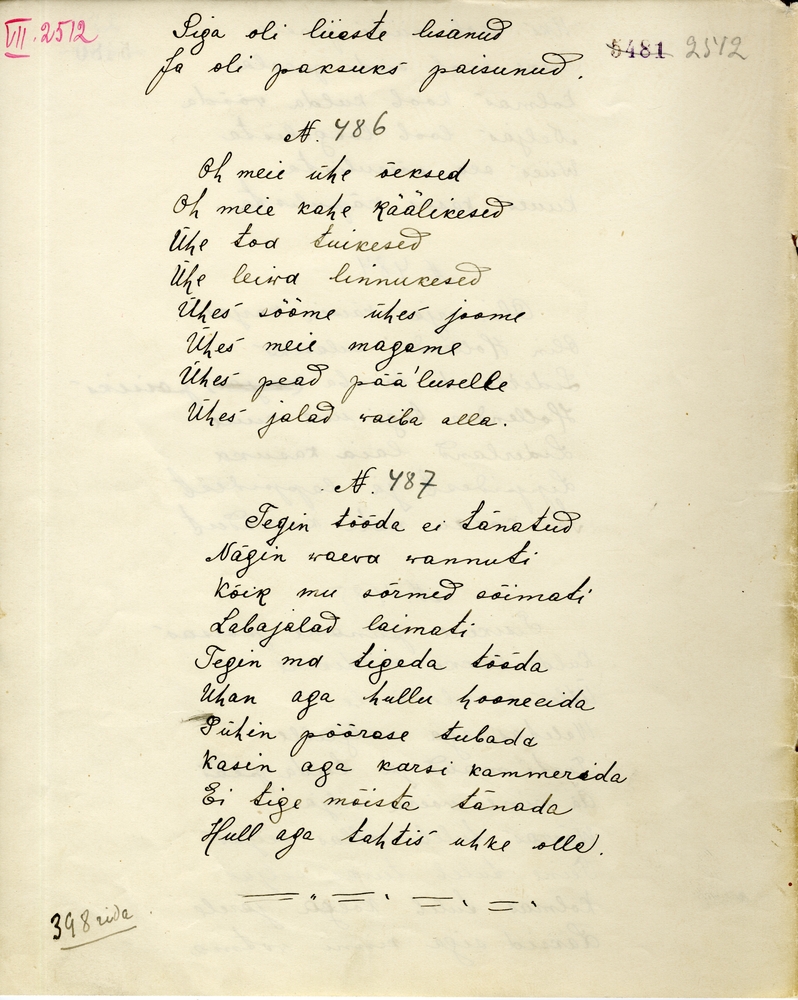 VII. 2512
5481 2512
Siga oli liiaste lisanud
Ja oli paksuks paisunud.
N. 486
Oh meie ühe õeksed
Oh meie kahe käälikesed
Ühe toa tuikesed
Ühe leiwa linnukesed
Ühes sööme ühes joome
Ühes meie magame
Ühes pead pää'luselle
Ühes jalad waiba alla.
N. 487
Tegin tööda ei tänatud
Nägin waewa wannuti
Kõik mu sõrmed sõimati
Labajalad laimati
Tegin ma tigeda tööda
Uhan aga hullu hooneeida
Pühin pöörase tubada
Kasin aga karsi kammerida
Ei tige mõista tänada
Hull aga tahtis uhke olla.
398 rida